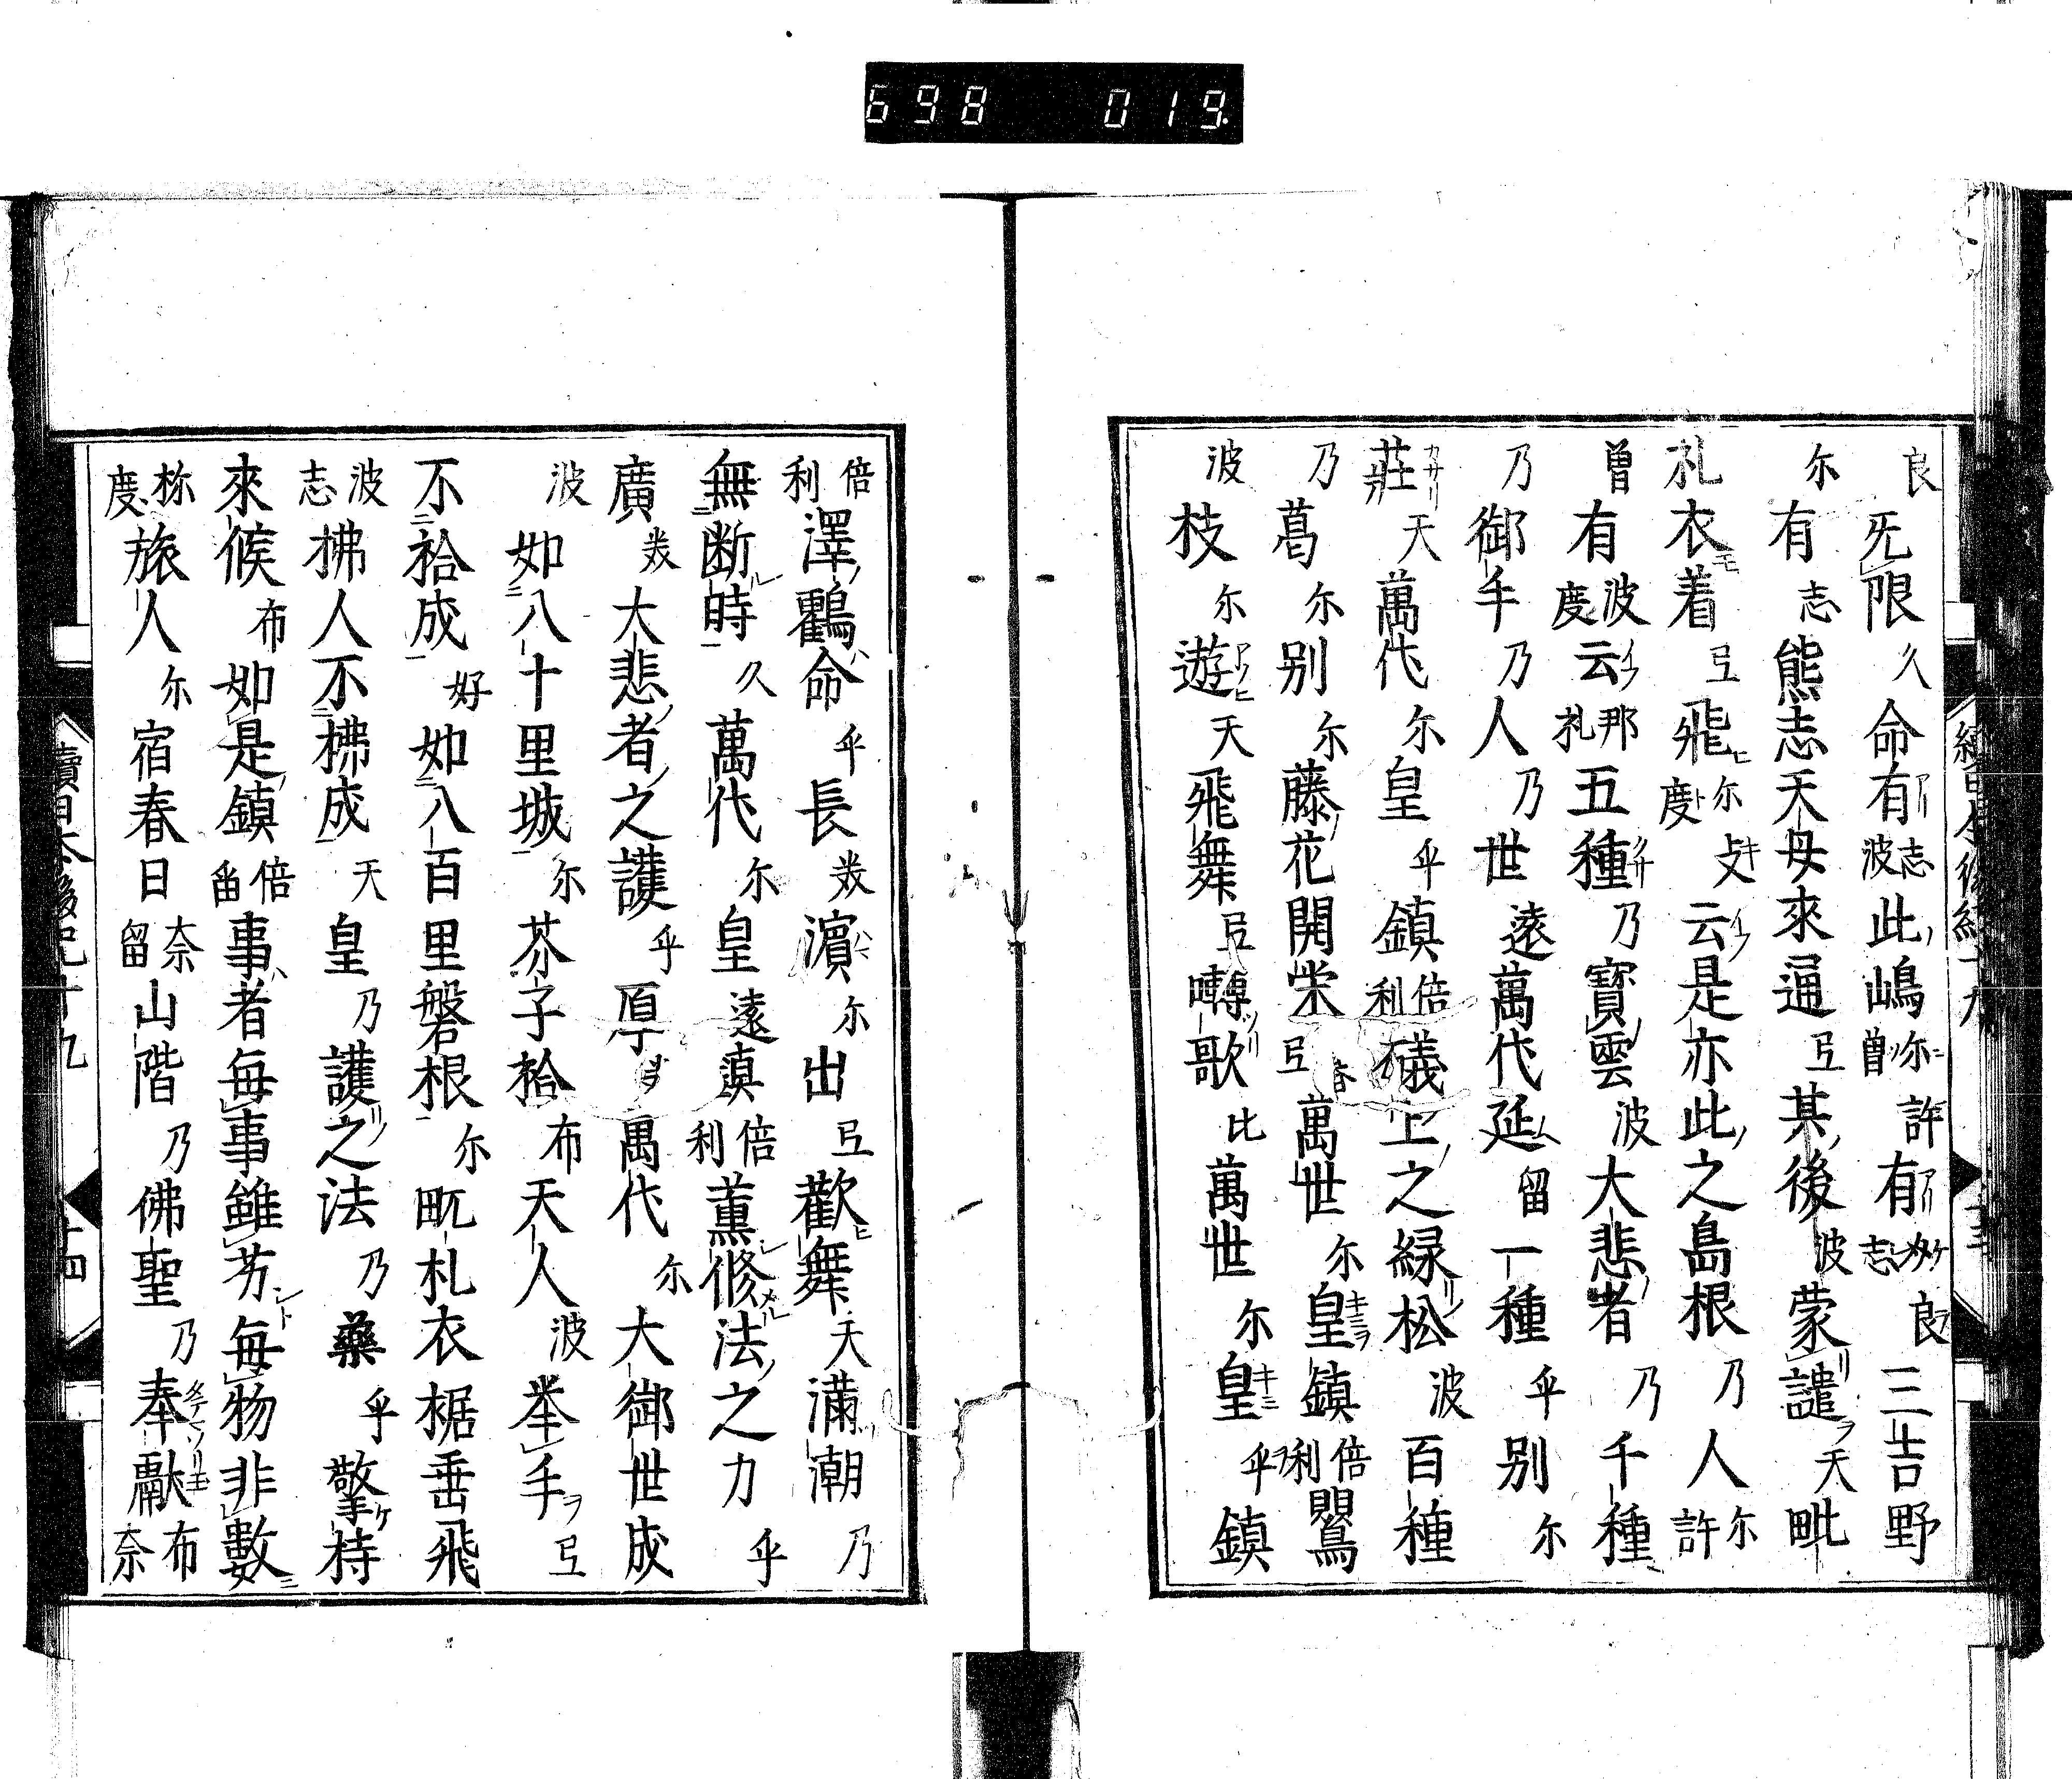 698 019
良旡限久命有志波此嶋尓曽許有介志良三吉野
尓有志熊志天毋來通弖其後波蒙譴天毗
礼衣着弖飛尓度攴云是亦此之島根乃人尓許
曽有波度云那礼五種乃寶雲波大悲者乃千種
乃御手乃人乃世遠萬代延留一種乎别尓
莊天萬代尓皇乎鎮倍利礒上之緑松波百種
乃葛尓别尓藤花開栄弖萬世尓皇鎮倍利鸎
波枝尓遊天飛舞弖囀歌比萬世尓皇乎鎮
倍利澤鸖命乎長美濵尓出弖歡舞天満潮乃
無断時久萬代尓皇遠鎮倍利薫修法之力乎
廣美大悲者之護乎厚美萬代尓大御世成
波如八十里城尓芥子拾布天人波挙手弖
不拾成好如八百里磐根尓毗礼衣裾垂飛
波志拂人不拂成天皇乃護之法乃藥乎擎持
來候布如是鎮倍留事者毎事雖芳毎物非數
祢度旅人尓宿春日奈留山階乃佛聖乃奉獻布奈